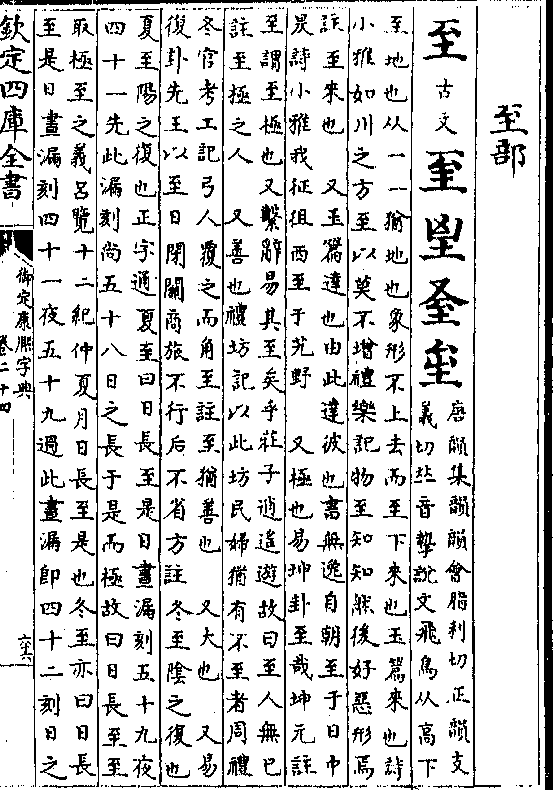 至部
至
古文
𦤳㞷𦤵𡊾
唐韻集韻韻會脂利切正韻支
義切𠀤音摯說文飛鳥从高下
至地也从一一猶地也象形不上去而至下來也玉篇來也詩
小雅如川之方至以莫不增禮樂記物至知知然後好惡形焉
註至來也 又玉篇達也由此達彼也書無逸自朝至于日中
昃詩小雅我征徂西至于艽野 又極也易坤卦至哉坤元註
至謂至極也又繫辭易其至矣乎莊子逍遙遊故曰至人無已
註至極之人 又善也禮坊記以此坊民婦猶有不至者周禮
冬官考工記弓人覆之而角至註至猶善也 又大也 又易
復卦先王以至日閉關商旅不行后不省方註 冬至陰之復也
夏至陽之復也正字通夏至曰日長至是日晝漏刻五十九夜
四十一先此漏刻尚五十八日之長于是而極故曰日長至至
取極至之義呂覽十二紀仲夏月日長至是也冬至亦曰日長
至是日晝漏刻四十一夜五十九過此晝漏即四十二刻日之
欽定四庫全書
御定康熙字典
卷二十四
六十六